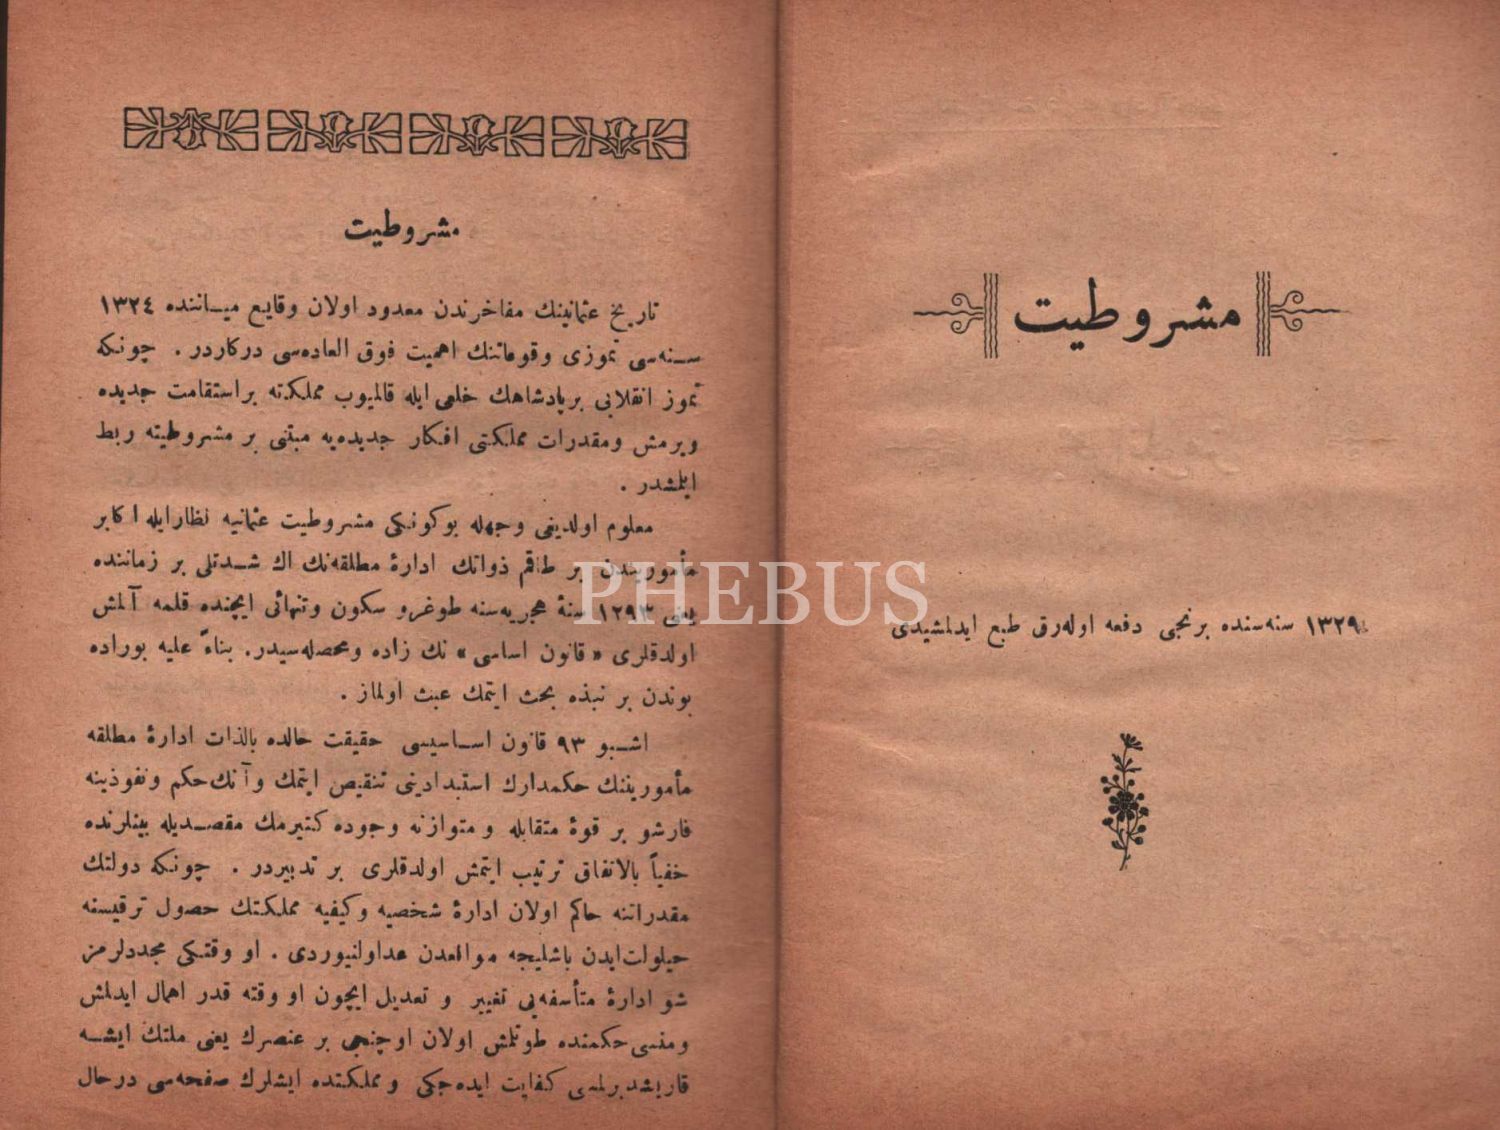 مشروطیت
١٣٢٩ سنه‌سنده برنجی دفعه اوله‌رق طبع ایدلمشیدی
مشروطیت
تاریخ عثمانینك مفاخرندن معدود اولان وقایع میــاننده ١٣٢٤
ســنه‌سی تموزی وقوعاتنك اهمیت فوق العاده‌سی درکاردر . چونکه
تموز انقلابی برپادشاهك خلعی ایله قالمیوب مملکته براستقامت جدیده
ویرمش ومقدرات مملکتی افکار جدیده‌یه مبتنی بر مشروطیته ربط
ایلمشدر .
معلوم اولدیغی وجهله بوکونکی مشروطیت عثمانیه نظارایله اکابر
مأموریندن بر طاقم ذواتك ادارهٔ مطلقه‌نك اك شــدتلی بر زماننده
یعنی ١٢٩٣ سنهٔ هجریه‌سنه طوغرو سکون وتنهائی ایچنده قلمه آلمش
اولدقلری «قانون اساسی» نك زاده ومحصله‌سیدر. بناءً علیه بوراده
بوندن بر نبذه بحث ایتمك عبث اولماز .
اشــبو ٩٣ قانون اســاسیسی حقیقت حالده بالذات ادارهٔ مطلقه
مأمورینك حکمدارك استبدادینی تنقیص ایتمك وآنك حکم ونفوذینه
قارشو بر قوهٔ متقابله و متوازنه وجوده کتیرمك مقصــدیله بینلرنده
خفیاً بالاتفاق ترتیب ایتمش اولدقلری بر تدبیردر . چونکه دولتك
مقدراتنه حاکم اولان ادارهٔ شخصیه وکیفیه مملکتك حصول ترقیسنه
حیلولت‌ایدن باشلیجه موانعدن عداولنیوردی . او وقتکی مجددلرمز
شو ادارهٔ متأسفه‌یی تغییر و تعدیل ایچون او وقته قدر اهمال ایدلمش
ومنسی حکمنده طوتلمش اولان اوچنجی بر عنصرك یعنی ملتك ایشــه
قاریشدیرلمسی کفایت ایده‌جکی و مملکتده ایشلرك صفحه‌سی درحال
PHEBUS